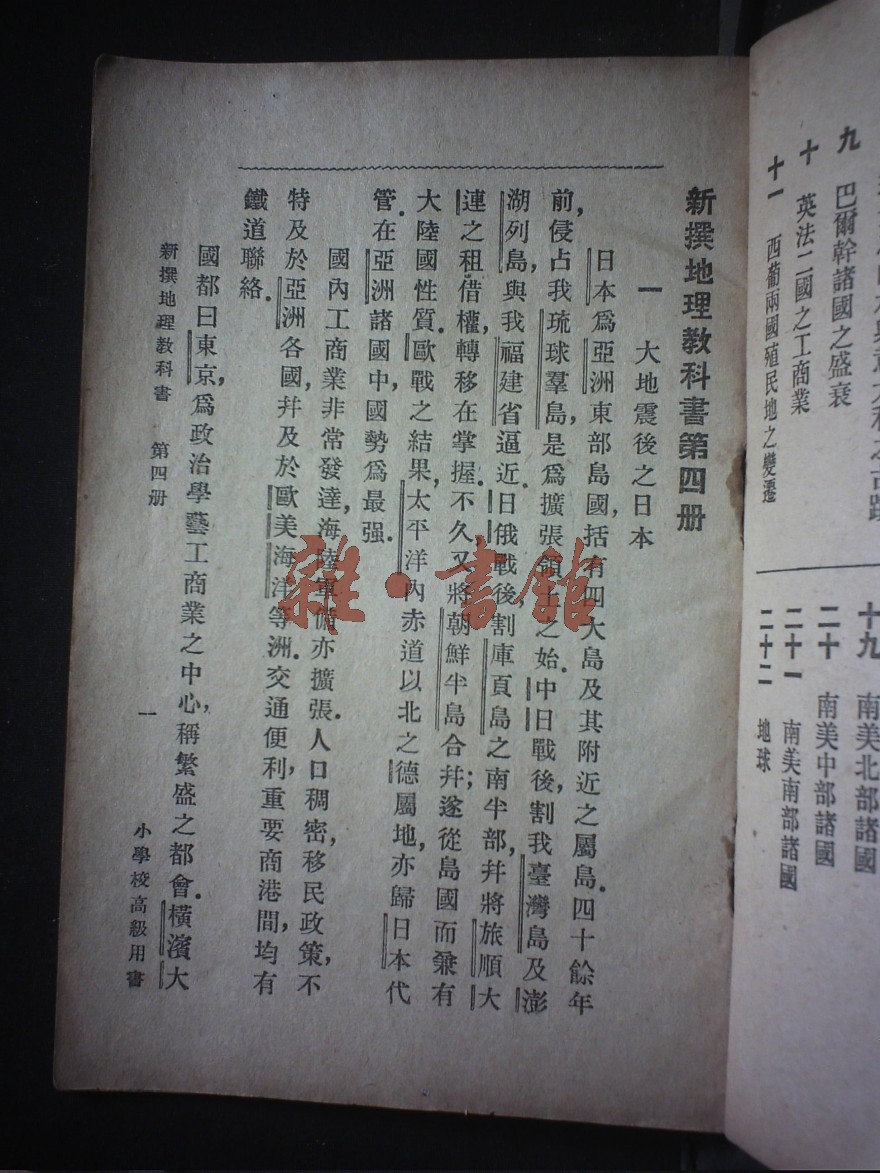 九　巴爾幹諸國之盛衰
十　英法二國之工商業
十一　西葡兩國殖民地之變遷
十九　南美北部諸國
二十　南美中部諸國
二十一　南美南部諸國
二十二　地球
新撰地理教科書第四册
一　大地震後之日本
日本爲亞洲東部島國,括有四大島及其附近之屬島.四十餘年
前,侵占我琉球羣島,是爲擴張領土之始.中日戰後,割我臺灣島及澎
湖列島,與我福建省逼近.日俄戰後,割庫頁島之南半部,幷將旅順大
連之租借權,轉移在掌握.不久,又將朝鮮半島合幷;遂從島國而兼有
大陸國性質.歐戰之結果,太平洋內赤道以北之德屬地,亦歸日本代
管.在亞洲諸國中,國勢爲最强.
國內工商業非常發達,海陸軍備亦擴張.人口稠密,移民政策,不
特及於亞洲各國,幷及於歐美海洋等洲.交通便利,重要商港間,均有
鐵道聯絡.
國都曰東京,爲政治學藝工商業之中心,稱繁盛之都會.橫濱大
新撰地理教科書　第四册　一　小學校高級用書
雜·書館